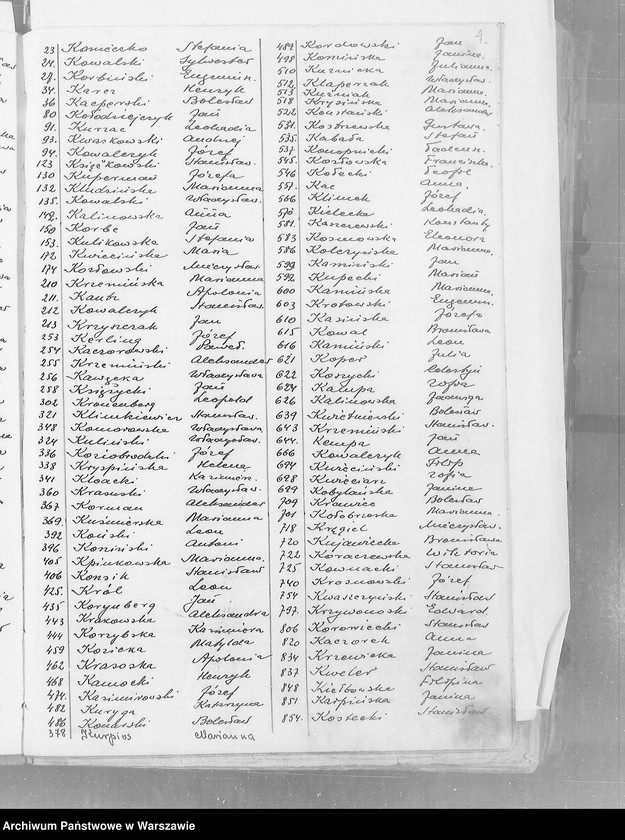 4.
23 Komeczko Stefania
24. Kowalski Sylwester
27. Korbiński Eugeniu.
34. Karcz Henryk
36 Kacperski Bolesław
80 Kołodziejczyk Jan
91. Kurzac Leokadia
93. Kwaskowski Andrzej
94. Kowalczyk Józef
123 Książkowski Stanisław.
130 Kuperman Józefa
132 Kludzińska Marianna
135. Kowalski Władysław.
149. Kalinowska Anna
150 Korbe Jan
153. Kulikowska Stefania
172 Kwiecińska Maria
174 Kozłowski Mieczysław.
210 Krzemińska Marianna
211. Kautz Apolonia
212 Kowalczyk Stanisław.
213 Krzyszczak Jan
253 Kerling Józef
254 Kaczorowski Paweł
255 Krzemiński Aleksander
256 Władysława
258 Księżycki Jan
302 Kronenberg Leopold
321 Klimkiewicz Stanisław.
348 Komorowska Władysława
324 Kuliński Władysław.
336 Koziobrodzki Józef
338 Kryspińska Helena
341 Kłoacki Kazimierz.
360 Krasuski Władysław.
367 Korman Aleksander
369. Kuśmierska Marianna
392 Koński Leon
396 Koniński Antoni
405 Kpinkowska Marianna.
406 Konsik Stanisław
425. Król Leon
435 Korynberg Jan
443 Krakowska Aleksandra
444 Korzybska Kazimiera
459 Kozicka Matylda
462 Krasoska Apolonia
468 Kamocki Henryk
474. Kazimirowski Józef
482 Kuryga Katarzyna
486 Konarski Bolesław
378 Kurpios Marianna
489 Kordowski Jan
498 Komińska Janina.
510 Kuźnicka Julianna.
512 Kłaperzak Władysław.
513 Kuźniak Marianna.
518 Krysińska Marianna
522 Konstański Aleksander
531. Kosbrewska Gustawa.
535. Kabała Stefan
537 Konopnicki Tadeusz.
545. Kozłowska Franciszka.
546 Kołecki Teofil
557. Kac Anna.
566 Klimek Józef
570 Kielecka Leokadia.
581. Kaszewski Konstanty
583 Kosmowska Eleonora
586 Kolczyńska Marianna.
590 Kamiński Jan
592 Kupecki Marian
600 Kamińska Marianna.
603 Krotowski Eugeniu.
610 Kasińska Józefa
615 Kowal Bronisława
616 Kamiński Leon
621 Koper Julia
622 Koszycki Celestyn
624 Kałupa Zofia
626 Kalinowska Jadwiga
639 Kwietniewski Bolesław
643 Krzemiński Stanisław.
644. Kempa Jan
666 Kowalczyk Anna
674 Kwieciński Filip
678 Kwieciarz Zofia
699 Kobylańska Janina
709 Krawiec Bolesław
701 Kołobrzeska Marianna.
718 Kręgiel Mieczysław.
720 Kujawiecka Bronisława
722 Koraczewska Wiktoria
725 Kownacki Stanisław
740 Krosnowski Józef
754 Kwaszczyński Stanisław
797. Krzywonoski Edward.
806 Korowiecki Stanisław
820 Kaczorek Anna
834 Krzewicka Janina
837 Kweler Stanisław
848 Kiełbowska Filipina
851 Karpińska Janina
854. Kostecki Stanisław
Archiwum Państwowe w Warszawie